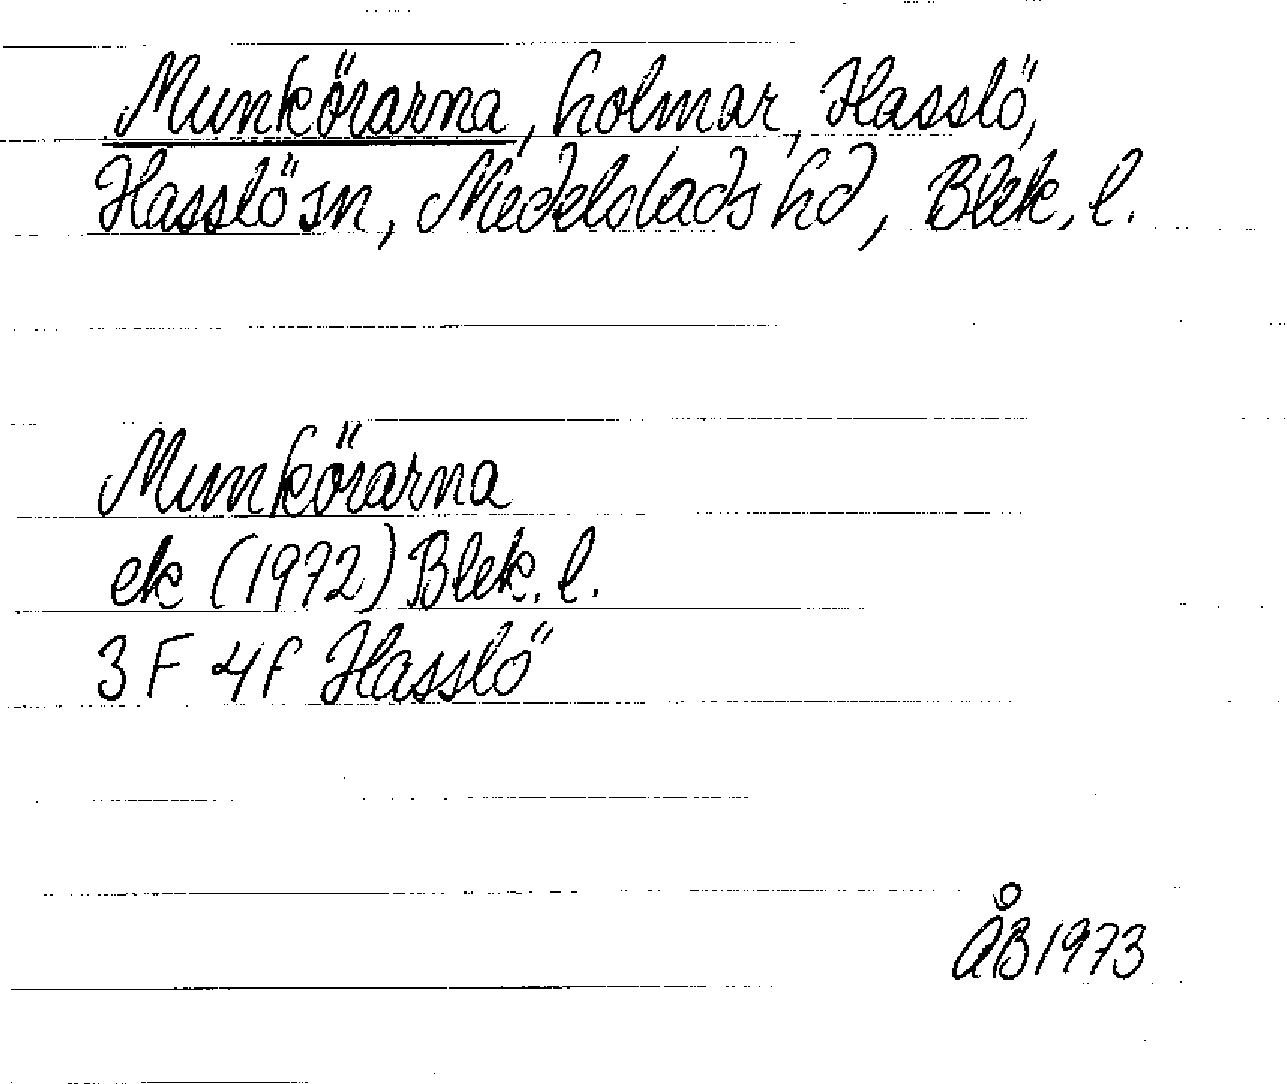 Munkörarna, holmar, Hasslö,
Hasslö sn, Medelstads hd, Blek. l.
Munkörarna
ek (1972) Blek. l.
3 F 4f Hasslö
ÅB 1973